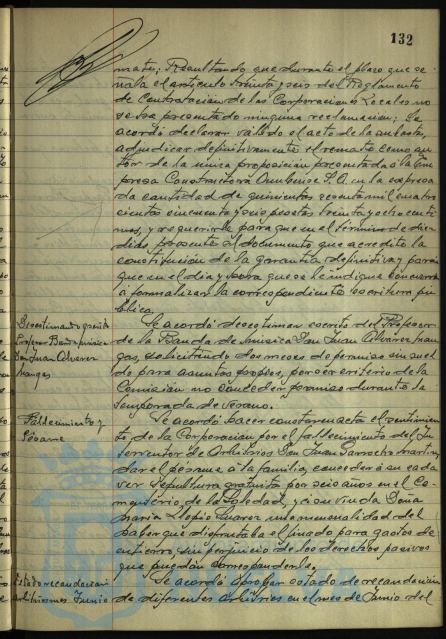 132
mate; Resultando que durante el plazo que se-
ñala el artículo treinta y seis del Reglamento
de Contratación de las Corporaciones Locales no
se ha presentado ninguna reclamación; Se
acordó declarar válido el acto de la subasta,
adjudicar definitivamente el remate como au-
tor de la única proposición presentada a la Em-
presa Constructora Onubense S.A. en la expresa-
da cantidad de quinientas sesenta mil cuatro
cientas cincuenta y seis pesetas treinta y ocho cénti-
mos, y requerirle para que en el término de diez
días, presente el documento que acredite la
constitución de la garantía definitiva y para
que en el día y hora que se le indique concurra
a formalizar la correspondiente escritura pú-
blica.
Desestimando petición
Profesor Banda música
Don Juan Alvarez
Se acordó desestimar escrito del Profesor
de la Banda de música Don Juan Alvarez
gas, solicitando dos meses de permiso sin suel-
do para asuntos propios, por ser criterio de la
Comisión no conceder permiso durante la
temporada de verano.
Fallecimiento y
Pésame
Se acordó hacer constar en acta el sentimien-
to de la Corporación por el fallecimiento del In-
terventor de Arbitrios Don Juan Sarrocho Martin,
dar el pésame a la familia, conceder a su cada-
ver sepultura gratuita por seis años en el Ce-
menterio de la Soledad, y a su viuda Doña
Maria Suarez una mensualidad del
haber que disfrutaba el finado para gastos de
entierro, sin perjuicio de los derechos pasivos
que puedan corresponderle.
Estado recaudación
arbitrios mes Junio
Se acordó aprobar estado de recaudación
de diferentes arbitrios en el mes de Junio del